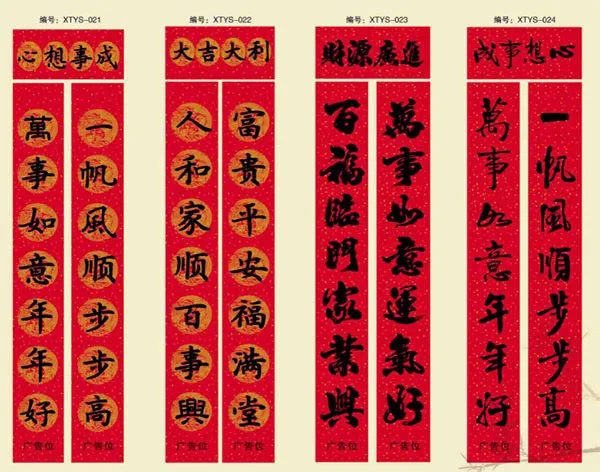 编号：XTYS-021
心想事成
一帆風顺步步高
广告位
萬事如意年年好
广告位
编号：XTYS-022
大吉大利
富贵平安福满堂
广告位
人和家顺百事興
广告位
编号：XTYS-023
財源廣進
萬事如意運氣好
百福臨門家業興
编号：XTYS-024
心想事成
一帆風順步步高
广告位
萬事如意年年好
广告位